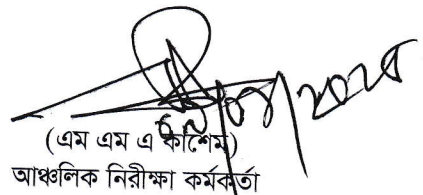 (এম এম এ কাশেম)
আঞ্চলিক নিরীক্ষা কর্মকর্তা